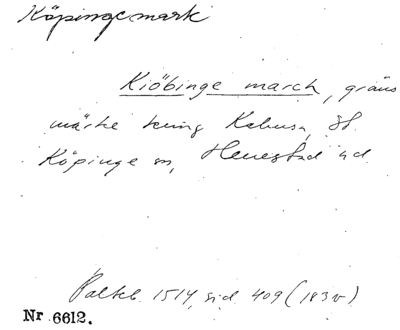 Köpinge mark
Kiöbinge march, gräns
märke kring Kabusa, St.
Köpinge sn, Herrestad hd.
Palteb. 1514, sid. 409 (183 v)
Nr 6612.